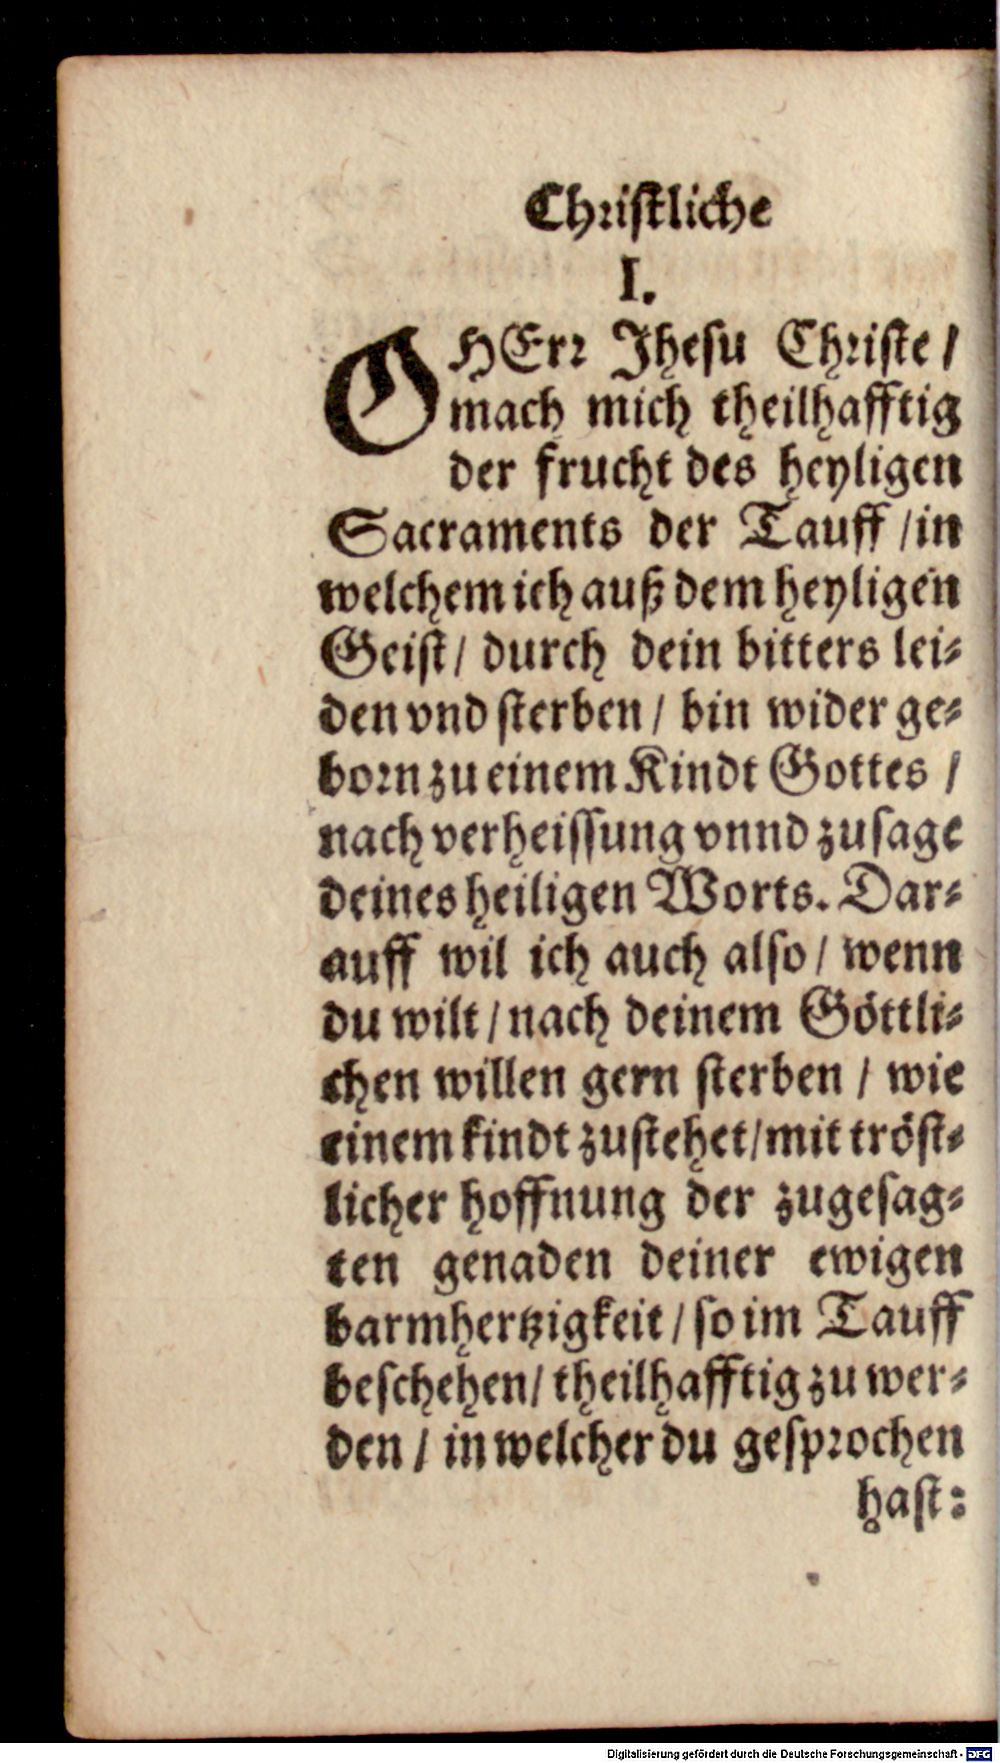 Christliche
I.
O HErr Jhesu Christe /
mach mich theilhafftig
der frucht des heyligen
Sacraments der Tauff / in
welchem ich auß dem heyligen
Geist / durch dein bitters lei-
den vnd sterben / bin wider ge-
born zu einem Kindt Gottes /
nach verheissung vnnd zusage
deines heiligen Worts. Dar-
auff wil ich auch also / wenn
du wilt / nach deinem Göttli-
chen willen gern sterben / wie
einem kindt zustehet / mit tröst-
licher hoffnung der zugesag-
ten genaden deiner ewigen
barmhertzigkeit / so im Tauff
beschehen / theilhafftig zu wer-
den / in welcher du gesprochen
hast:
Digitalisierung gefördert durch die Deutsche Forschungsgemeinschaft - DFG